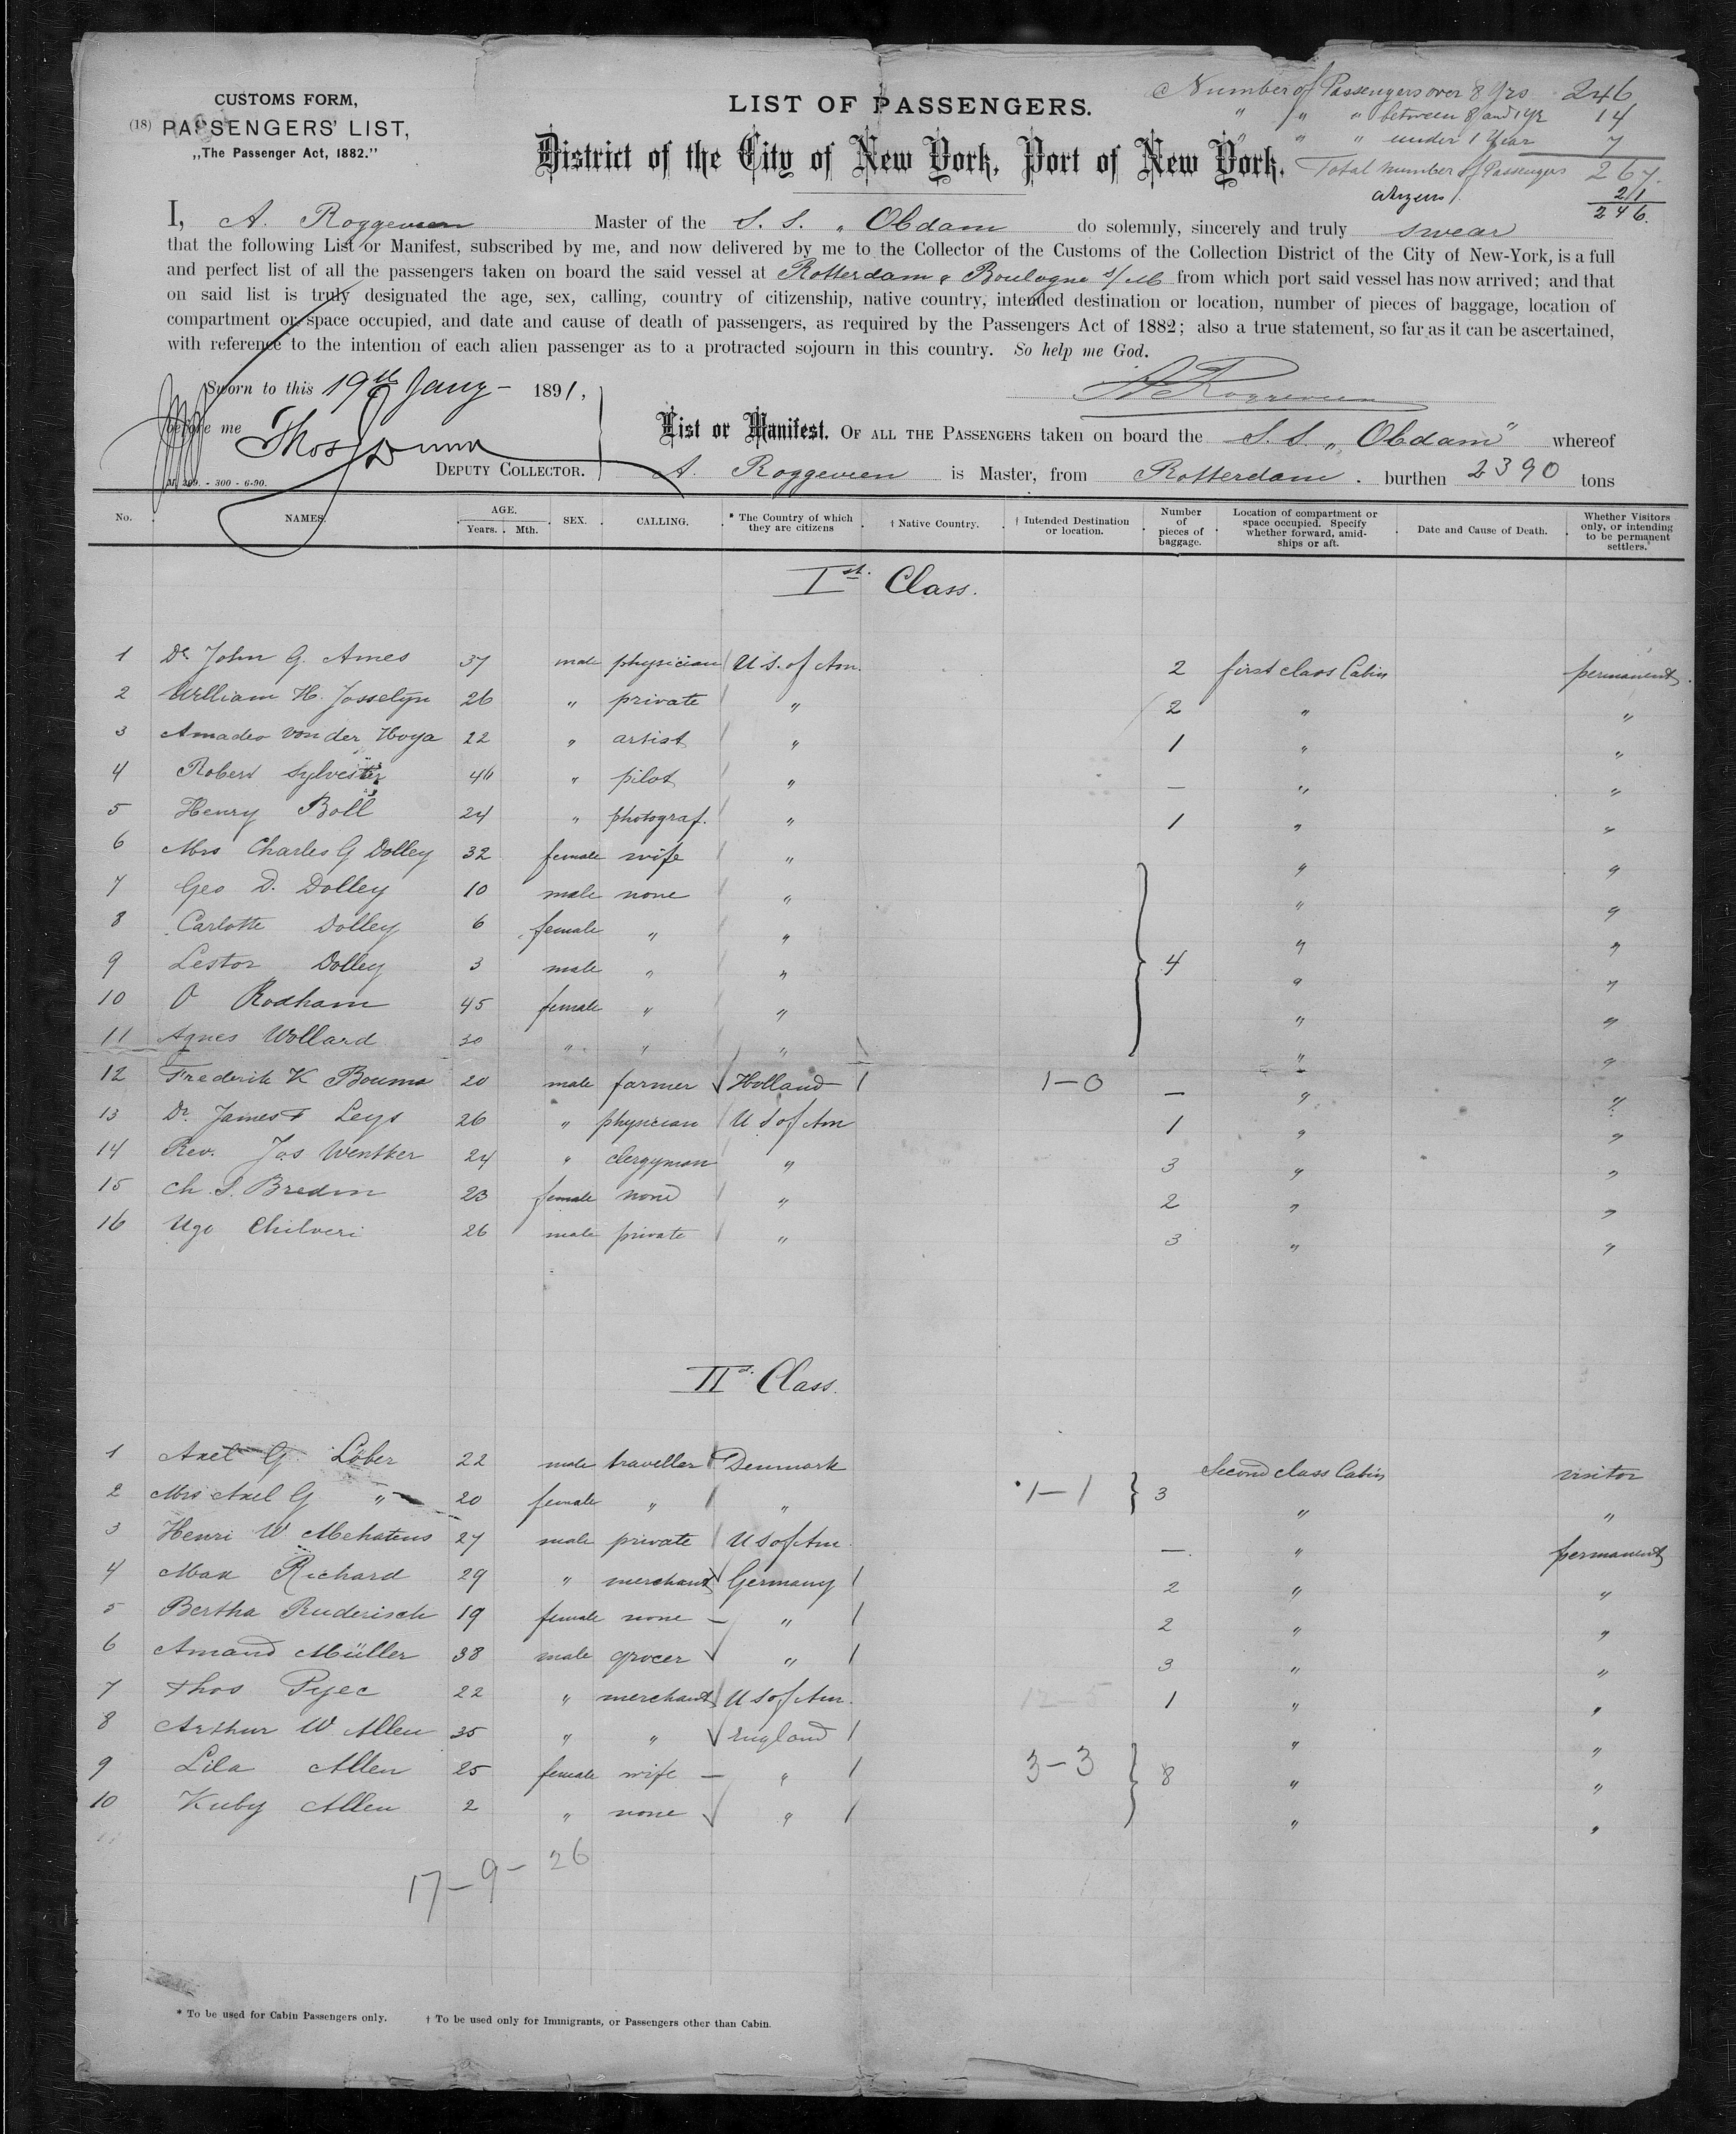 CUSTOMS FORM,
(18) PASSENGERS' LIST,
„The Passenger Act, 1882."
LIST OF PASSENGERS.
District of the City of New York, Port of New York.
Number of Passengers over 8 Yrs 246
" " " between 8 and 1 Yr 14
" " " under 1 Year 7
Total number of Passengers 267.
21
246.
I, A. Roggeveen Master of the S. S. „ Obdam do solemnly, sincerely and truly swear
that the following List or Manifest, subscribed by me, and now delivered by me to the Collector of the Customs of the Collection District of the City of New-York, is a full
and perfect list of all the passengers taken on board the said vessel at Rotterdam & Boulogne s/M from which port said vessel has now arrived; and that
on said list is truly designated the age, sex, calling, country of citizenship, native country, intended destination or location, number of pieces of baggage, location of
compartment or space occupied, and date and cause of death of passengers, as required by the Passengers Act of 1882; also a true statement, so far as it can be ascertained,
with reference to the intention of each alien passenger as to a protracted sojourn in this country. So help me God.
Sworn to this 19th Jany - 1891,
A Roggeveen
before me Thos Dunn
DEPUTY COLLECTOR.
M. 209. - 300 - 6-90.
List or Manifest. OF ALL THE PASSENGERS taken on board the S. S. „ Obdam" whereof
A. Roggeveen is Master, from Rotterdam . burthen 2390 tons
No. NAMES. AGE. Years. Mth. SEX. CALLING. * The Country of which they are citizens † Native Country. † Intended Destination or location. Number of pieces of baggage. Location of compartment or space occupied. Specify whether forward, amidships or aft. Date and Cause of Death. Whether Visitors only, or intending to be permanent settlers.
Ist. Class.
1 Dr John G. Ames 37 male physician U.S. of Am. 2 first class Cabin permanent.
2 William H. Josselyn 26 " private " 2 " "
3 Amadeo von der Hoya 22 " artist " 1 " "
4 Robert Sylvester 46 " pilot " — " "
5 Henry Boll 24 " photograf. " 1 " "
6 Mrs Charles G Dolley 32 female wife " " "
7 Geo D. Dolley 10 male none " " "
8 Carlotte Dolley 6 female " " " "
9 Lestor Dolley 3 male " " 4 " "
10 O Rodham 45 female " " " "
11 Agnes Wollard 30 " " " " "
12 Frederik K Bouma 20 male farmer Holland 1-0 — " "
13 Dr. James F Leys 26 " physician U S of Am 1 " "
14 Rev. Jos Wentker 24 " clergyman " 3 " "
15 Ch. S. Bredin 23 female none " 2 " "
16 Ugo Chilveri 26 male private " 3 " "
IId. Class.
1 Axel G. Löber 22 male traveller Denmark Second class Cabin visitor
2 Mrs Axel G " 20 female " " 1-1 3 " "
3 Henri W Mehatens 27 male private U S of Am. — " permanent
4 Max Richard 29 " merchant Germany 2 " "
5 Bertha Ruderisch 19 female none " 2 " "
6 Amand Müller 38 male grocer " 3 " "
7 Thos Pyec 22 " merchant U S of Am. 12-5 1 " "
8 Arthur W Allen 35 " " England " "
9 Lila Allen 25 female wife " 3-3 8 " "
10 Kuby Allen 2 " none " " "
17-9-26
* To be used for Cabin Passengers only. † To be used only for Immigrants, or Passengers other than Cabin.